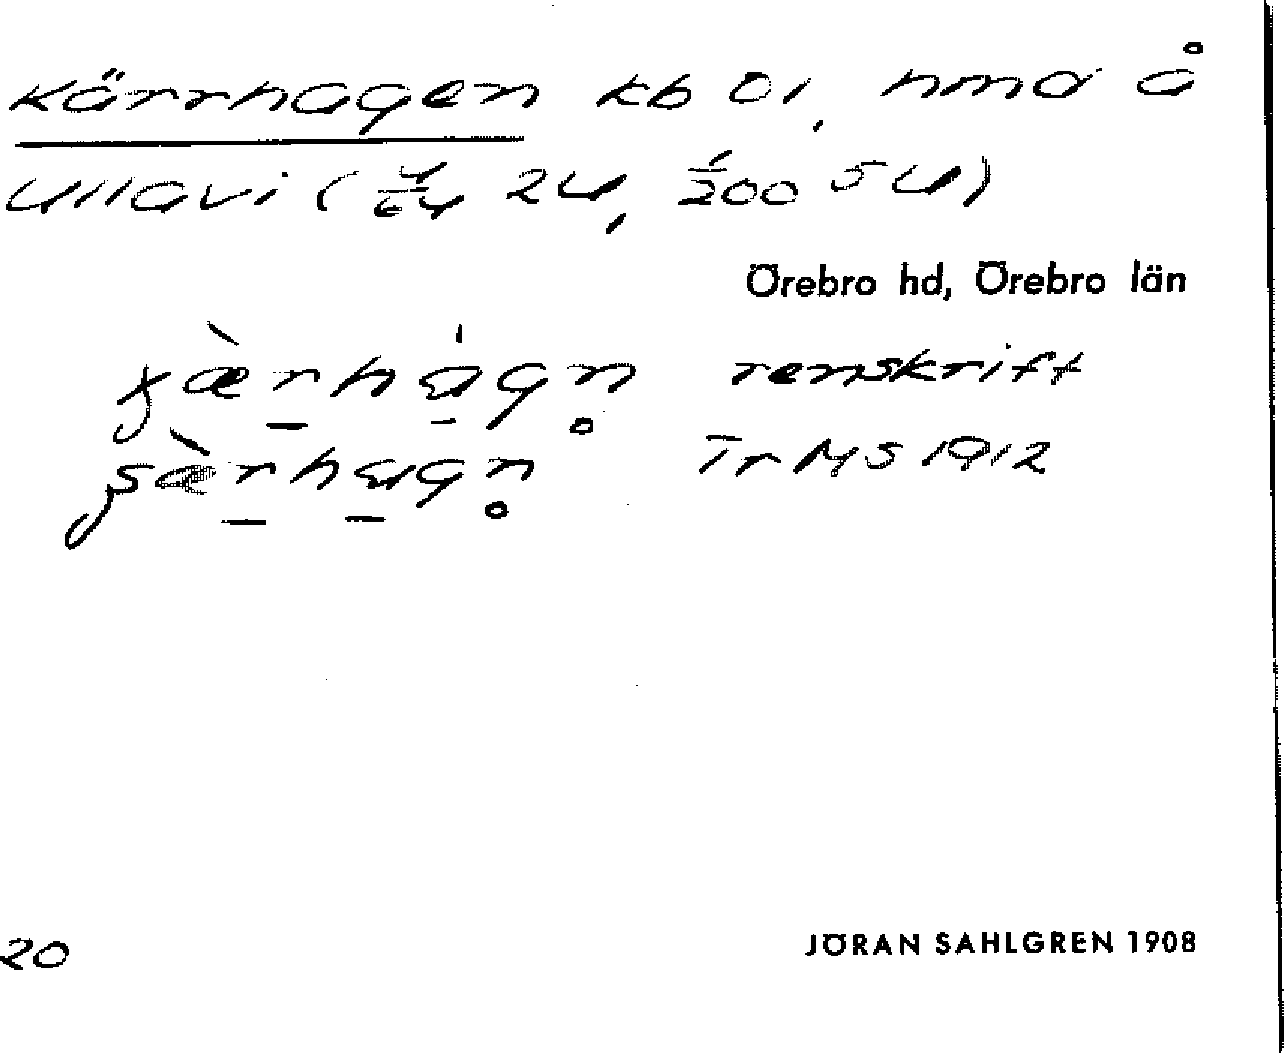 Kärrhagen kb 01, hmd å
Ullavi (1/64 2U, 1/200 5U)
Örebro hd, Örebro län
renskrift
Tr MS 1912
20
JÖRAN SAHLGREN 1908